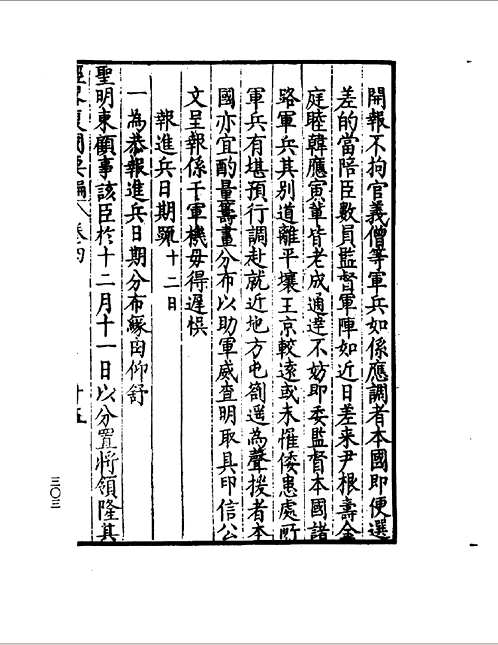 開報不拘官義僧等軍兵如係應調者本國即便選
差的當陪臣數員監督軍陣如近日差来尹根壽金
庭睦韓應寅軰皆老成通達不妨即委監督本國諸
路軍兵其别道離平壤王京較遠或未惟倭患處所
軍兵有堪預行調赴就近地方屯劄遥為聲援者本
國亦宜酌量籌畫分布以助軍威查明取具印信公
文呈報係干軍機毋得遲悮
報進兵日期䟽十二日
一為恭報進兵日期分布緣由仰舒
聖明東顧事該臣於十二月十一日以分置將領隆其
經畧復國要編 卷四 十五
三〇三